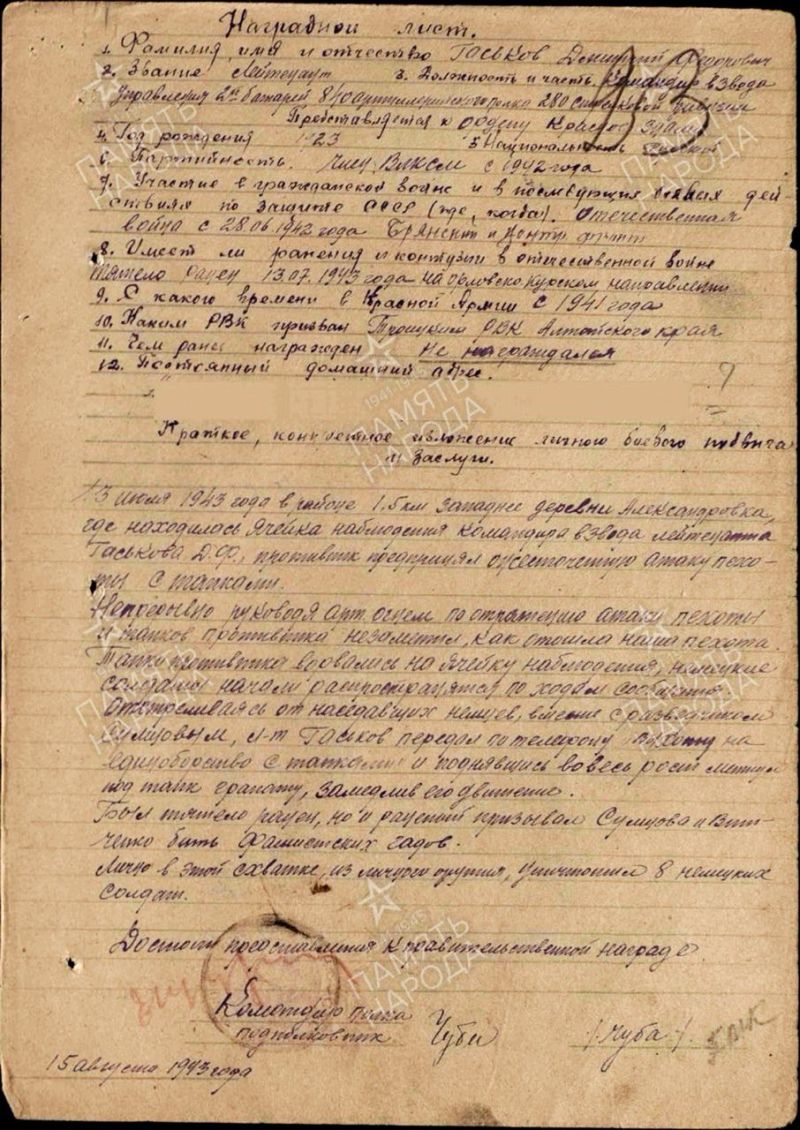 Наградной лист.
1. Фамилия, имя и отчество Таськов Дмитрий Федорович
2. Звание Лейтенант 3. Должность и часть Командир взвода
Управления 2ой батареи 840 артиллерийского полка 280 стрелковой дивизии
Представляется к ордену Красное Знамя
4. Год рождения 1923 5. Национальность
6. Партийность. Член ВЛКСМ с 1942 года
7. Участие в гражданской войне и в последующих боевых дей-
ствиях по защите СССР (где, когда). Отечественная
война с 28.06.1942 года Брянский и Центр. фронт
8. Имеет ли ранения и контузии в отечественной войне
Тяжело ранен 13.07.1943 года на Орловско Курском направлении
9. С какого времени в Красной Армии с 1941 года
10. Каким РВК призван Троицким РВК Алтайского края
11. Чем ранее награжден Не награждался
12. Постоянный домашний адрес.
Краткое, конкретное изложение личного боевого подвига
и заслуги.
13 июля 1943 года в районе 1.5 км западнее деревни Александровка,
где находилась ячейка наблюдения командира взвода лейтенанта
Таськова Д.Ф., противник предпринял ожесточенную атаку пехо-
ты с танками.
Непрерывно руководя арт. огнем по отражению атаки пехоты
и танков противника незаметил, как отошла наша пехота.
Танки противника ворвались на ячейку наблюдения, немецкие
солдаты начали распространятся по ходам сообщения.
Отстреливаясь от наседавших немцев, вместе с разведчиком
Сумцовым, л-т Таськов передал по телефону на
единоборство с танками и поднявшись во весь рост метнул
под танк гранату, замедлив его движение.
Был тяжело ранен, но и раненый призывал Сумцова и Вит-
ченко бить фашистских гадов.
Лично в этой схватке, из личного оружия, уничтожил 8 немецких
солдат.
Достоин представления к правительственной награде.
Командир полка
подполковник Чуба /Чуба/
15 августа 1943 года
ПАМЯТЬ
НАРОДА